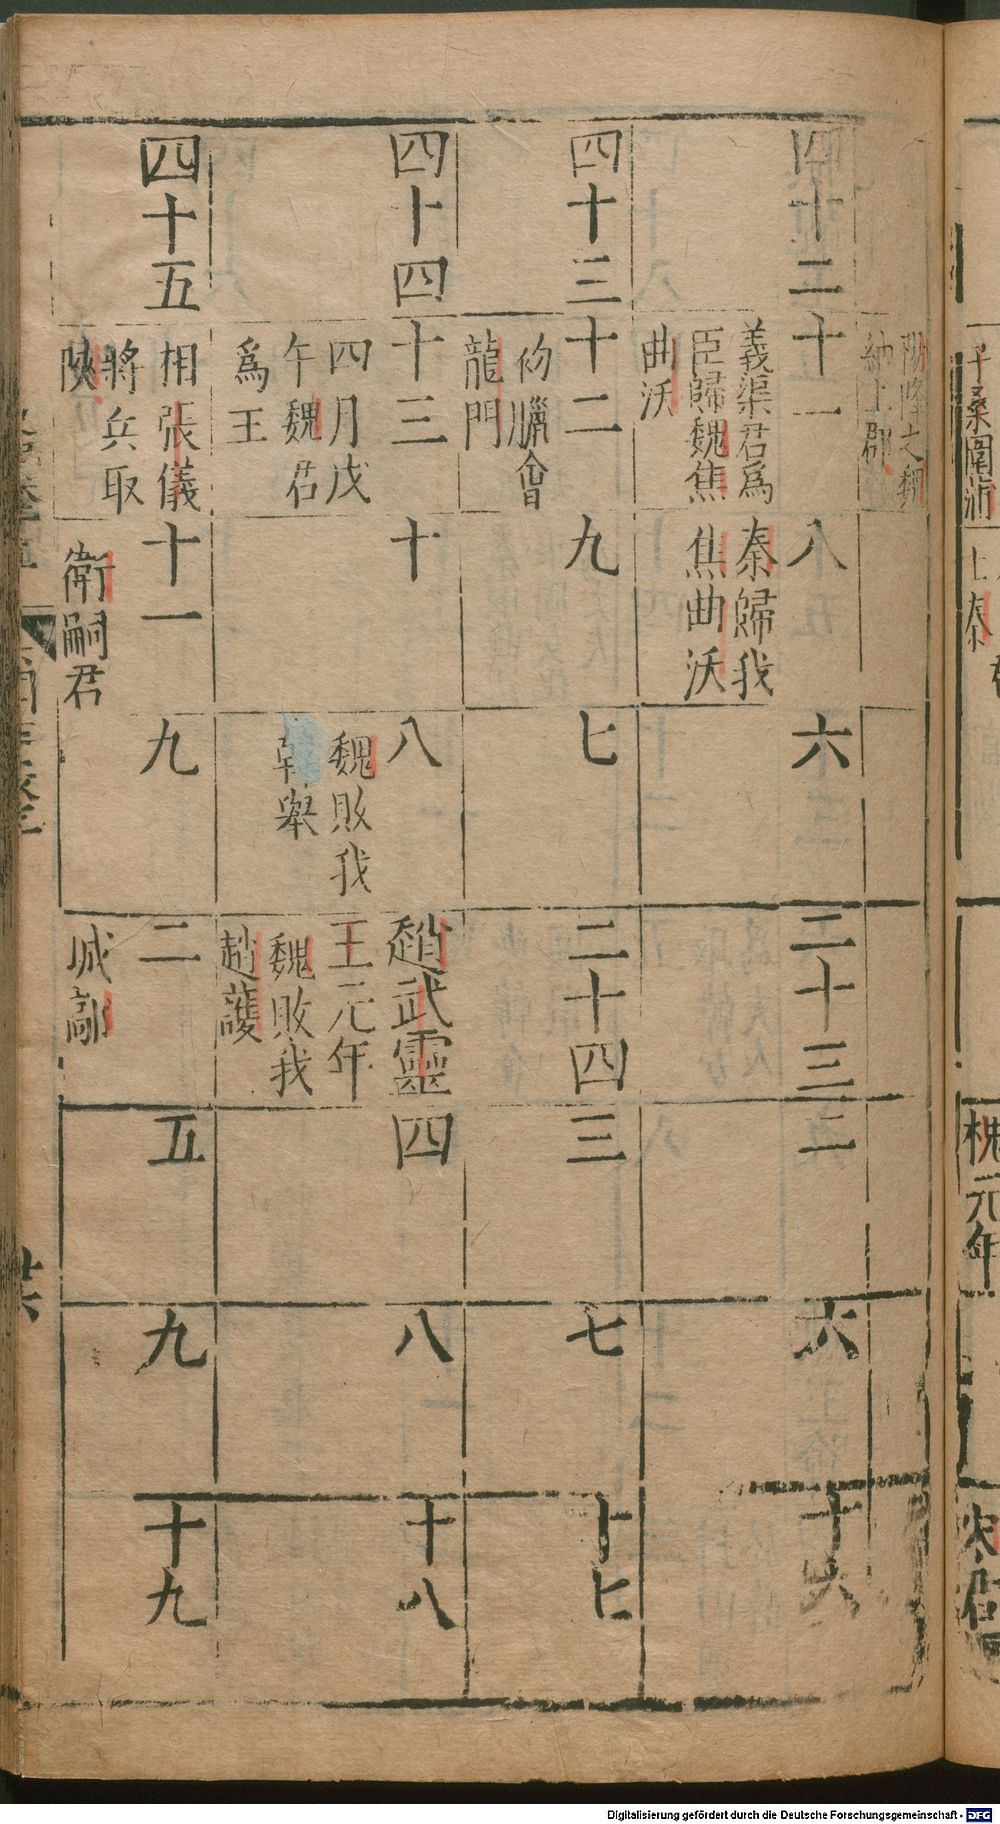 陰降之魏
納上郡
四十二
十一
義渠君爲
臣歸魏焦
曲沃
八
秦歸我
焦曲沃
六
二十三
二
六
十六
四十三
十二
初臘會
龍門
九
七
二十四
三
七
十七
四十四
十三
四月戊
午魏君
爲王
十
八
魏敗我
韓舉
趙武靈
王元年
魏敗我
趙護
四
八
十八
四十五
相張儀
將兵取
陝
十一
衛嗣君
九
二
城鄗
五
九
十九
Digitalisierung gefördert durch die Deutsche Forschungsgemeinschaft - DFG